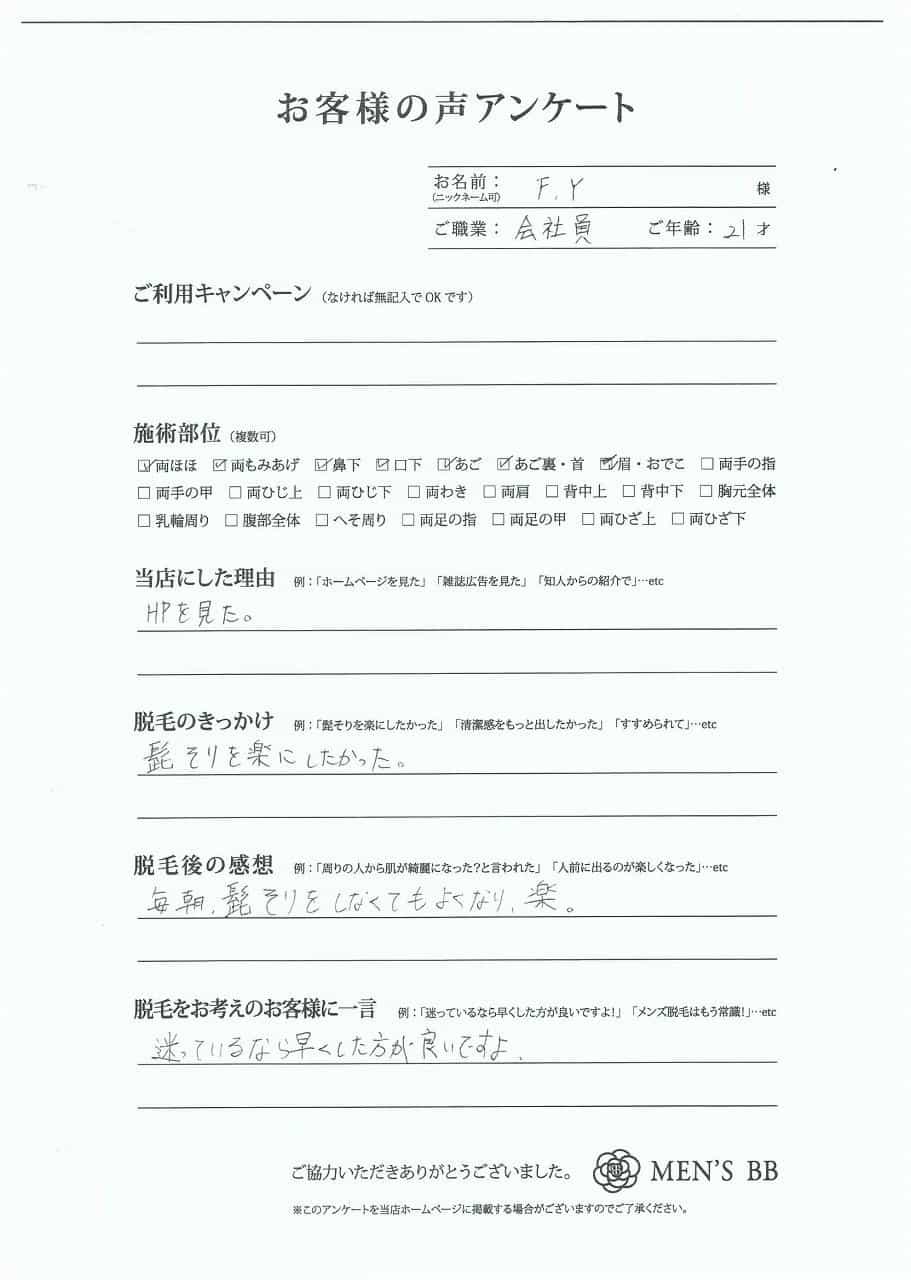 お客様の声アンケート
お名前： F.Y 様
(ニックネーム可)
ご職業： 会社員 ご年齢： 21 才
ご利用キャンペーン （なければ無記入でOKです）
施術部位 （複数可）
☑両ほほ ☑両もみあげ ☑鼻下 ☑口下 ☑あご ☑あご裏・首 ☑眉・おでこ □両手の指
□両手の甲 □両ひじ上 □両ひじ下 □両わき □両肩 □背中上 □背中下 □胸元全体
□乳輪周り □腹部全体 □へそ周り □両足の指 □両足の甲 □両ひざ上 □両ひざ下
当店にした理由 例：「ホームページを見た」「雑誌広告を見た」「知人からの紹介で」…etc
HPを見た。
脱毛のきっかけ 例：「髭そりを楽にしたかった」「清潔感をもっと出したかった」「すすめられて」…etc
髭そりを楽にしたかった。
脱毛後の感想 例：「周りの人から肌が綺麗になった？と言われた」「人前に出るのが楽しくなった」…etc
毎朝、髭そりをしなくてもよくなり、楽。
脱毛をお考えのお客様に一言 例：「迷っているなら早くした方が良いですよ！」「メンズ脱毛はもう常識！」…etc
迷っているなら早くした方が良いですよ、
ご協力いただきありがとうございました。 MEN'S BB
※このアンケートを当店ホームページに掲載する場合がございますのでご了承ください。